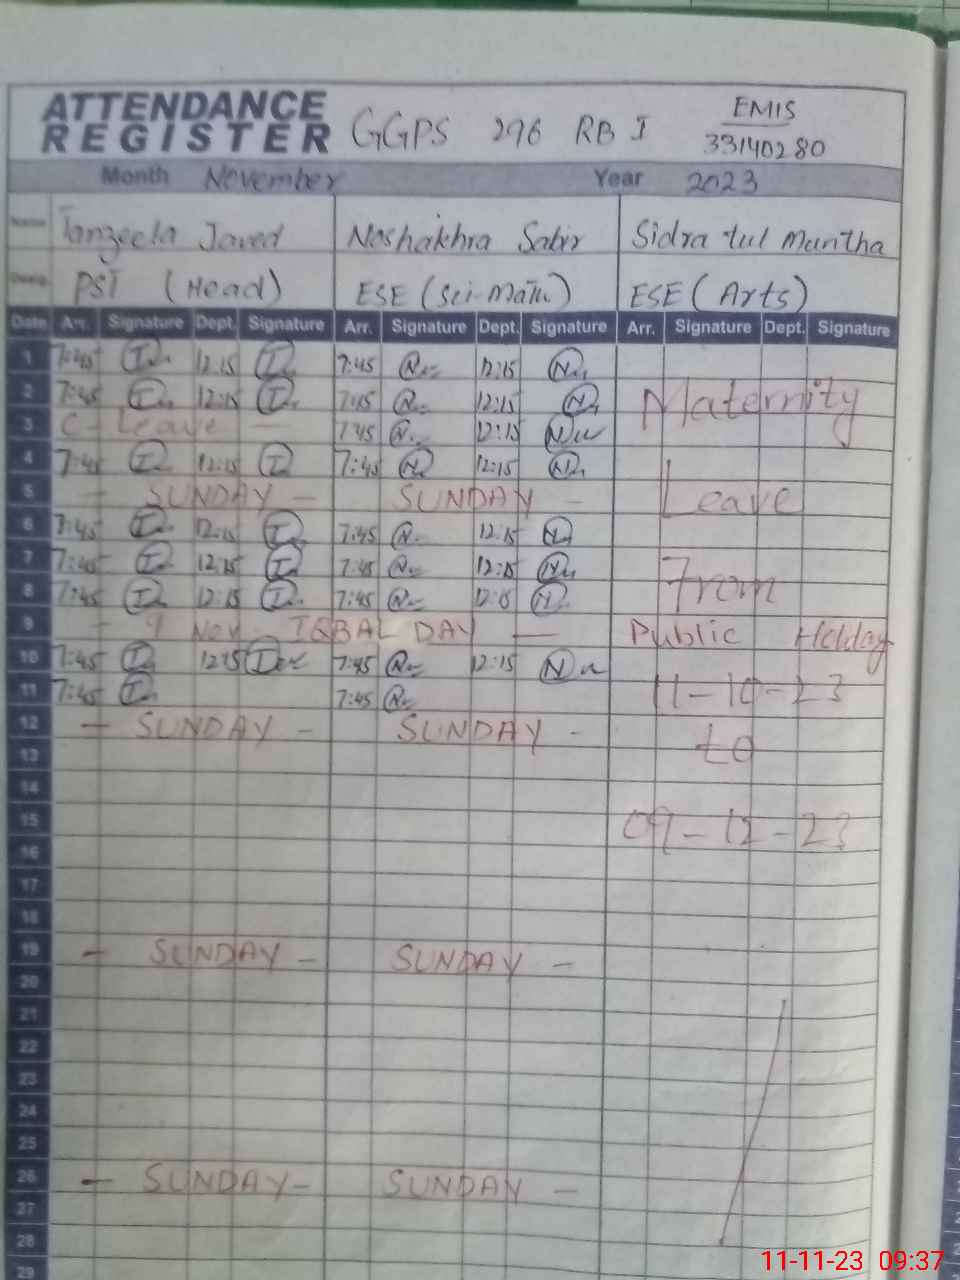 ATTENDANCE REGISTER GGPS 296 RB I EMIS 33140280
Month November Year 2023
Name Tanzeela Javed Noshakhra Sabir Sidra tul Muntha
Desig. PST (Head) ESE (Sci-Math) ESE (Arts)
Date Arr. Signature Dept. Signature Arr. Signature Dept. Signature Arr. Signature Dept. Signature
1 7:45 12:15 7:45 12:15
2 7:45 12:15 7:45 12:15 Maternity
3 C-Leave — 7:45 12:15
4 7:45 12:15 7:45 12:15
5 — SUNDAY — SUNDAY — Leave
6 7:45 12:15 7:45 12:15
7 7:45 12:15 7:45 12:15
8 7:45 12:15 7:45 12:15 From
9 — 9 Nov. IQBAL DAY — Public Holiday
10 7:45 12:15 7:45 12:15
11 7:45 7:45 11-10-23
12 — SUNDAY — SUNDAY —
13 to
14
15 09-12-23
16
17
18
19 — SUNDAY — SUNDAY —
20
21
22
23
24
25
26 — SUNDAY — SUNDAY —
27
28
29
11-11-23 09:37